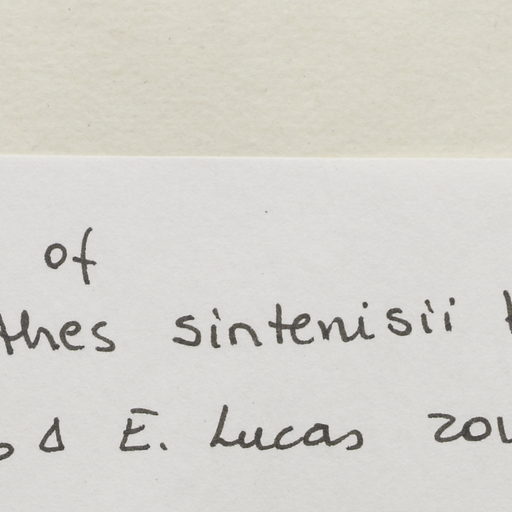 of
thes sintenisii
E. Lucas 20